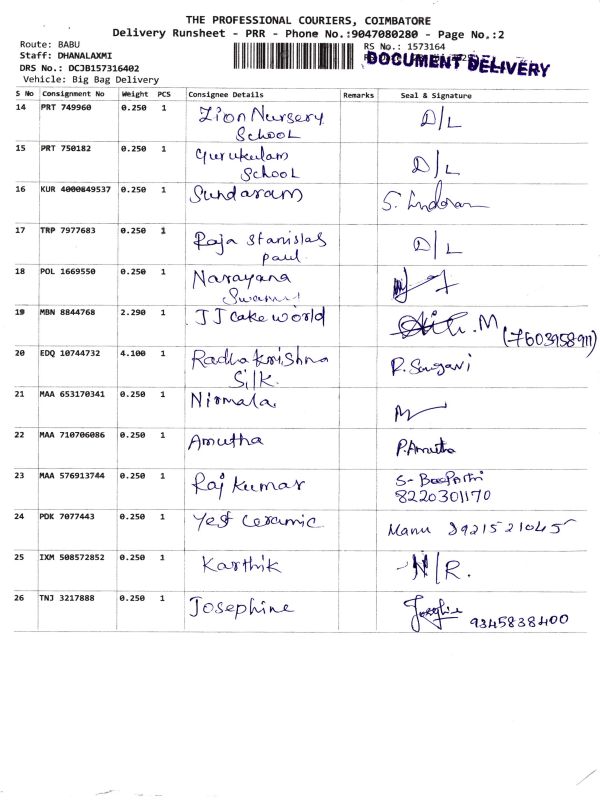 THE PROFESSIONAL COURIERS, COIMBATORE
Delivery Runsheet - PRR - Phone No.:9047080280 - Page No.:2
Route: BABU
RS No.: 1573164
Staff: DHANALAXMI
DOCUMENT DELIVERY
DRS No.: DCJB157316402
Vehicle: Big Bag Delivery
S No Consignment No Weight PCS Consignee Details Remarks Seal & Signature
14 PRT 749960 0.250 1 Zion Nursery D/L
School
15 PRT 750182 0.250 1 Gurukulam
School D/L
16 KUR 4000849537 0.250 1 Sundaram
17 TRP 7977683 0.250 1 Raja Stanislas D/L
Paul
18 POL 1669550 0.250 1 Narayana
Swami
19 MBN 8844768 2.290 1 JJ cake world
20 EDQ 10744732 4.100 1 Radha Krishna
Silk. R. Sangavi
21 MAA 653170341 0.250 1 Nirmala
22 MAA 710706086 0.250 1 Amutha P. Amutha
23 MAA 576913744 0.250 1 Raj Kumar
8220301170
24 PDK 7077443 0.250 1 Yest Ceramic Manu 8921521045
25 IXM 508572852 0.250 1 Karthik N/R.
26 TNJ 3217888 0.250 1 Josephine
9345838400